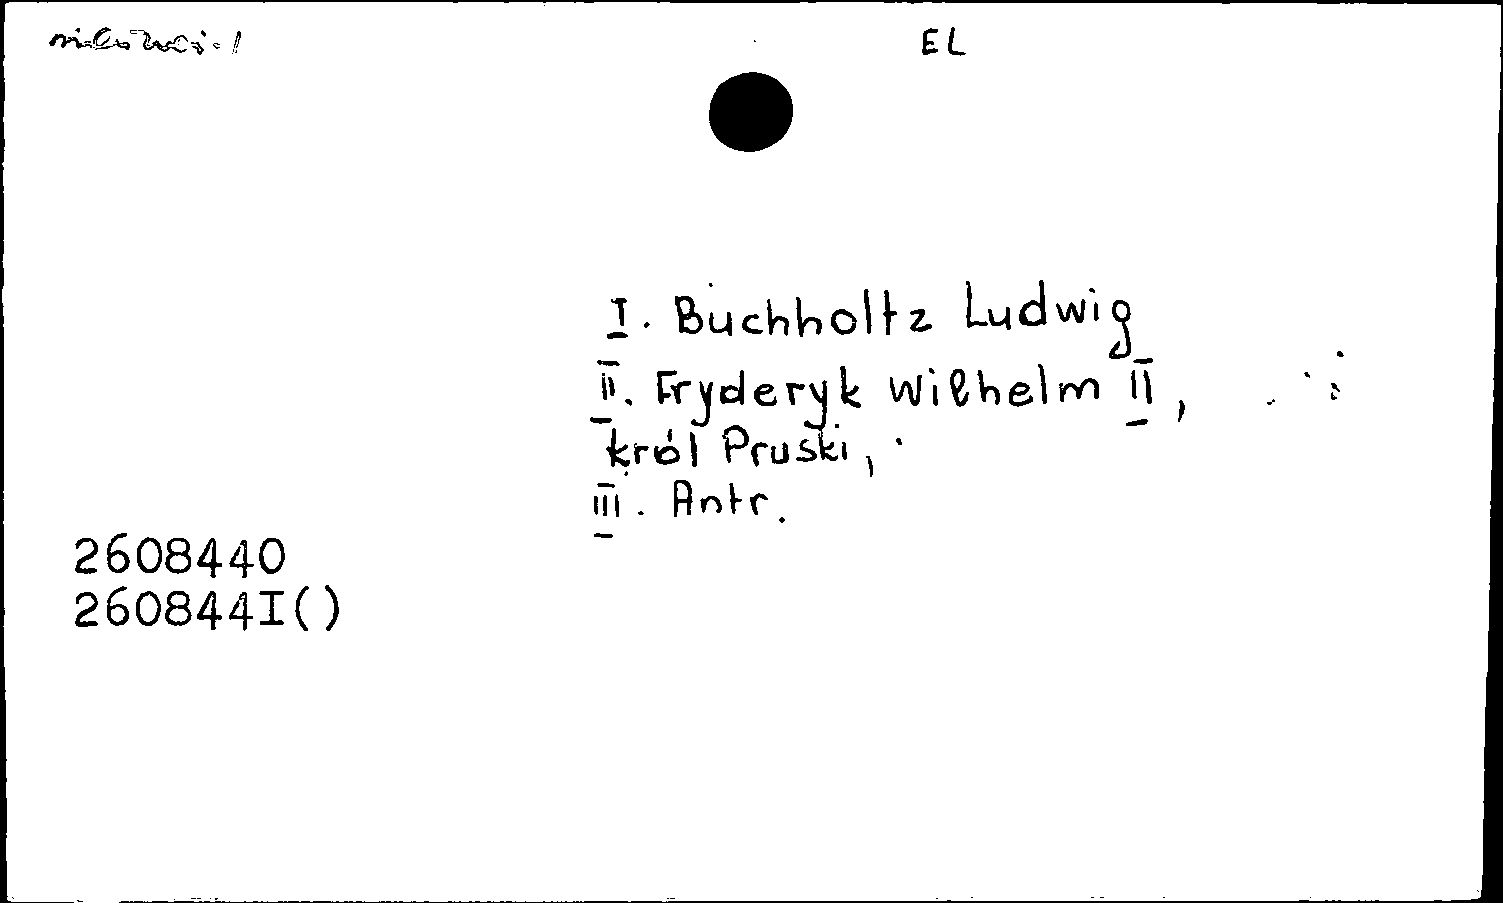 EL
I. Buchholtz Ludwig
II. Fryderyk Wilhelm II,
król Pruski,
III. Antr.
2608440
260844I()